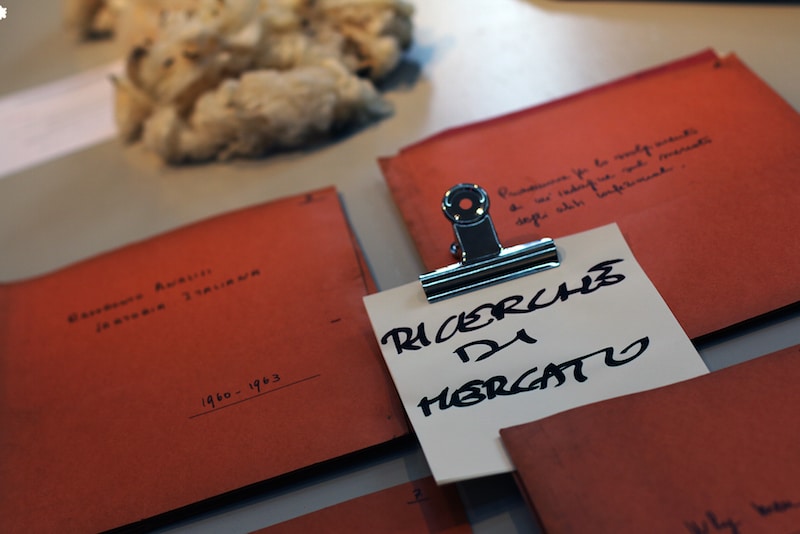 RAPPORTO ANALISI
SARTORIA ITALIANA
1960-1963
Programma per lo svolgimento
di un'indagine sul mercato
degli abiti confezionati.
RICERCHE
DI
MERCATO
7